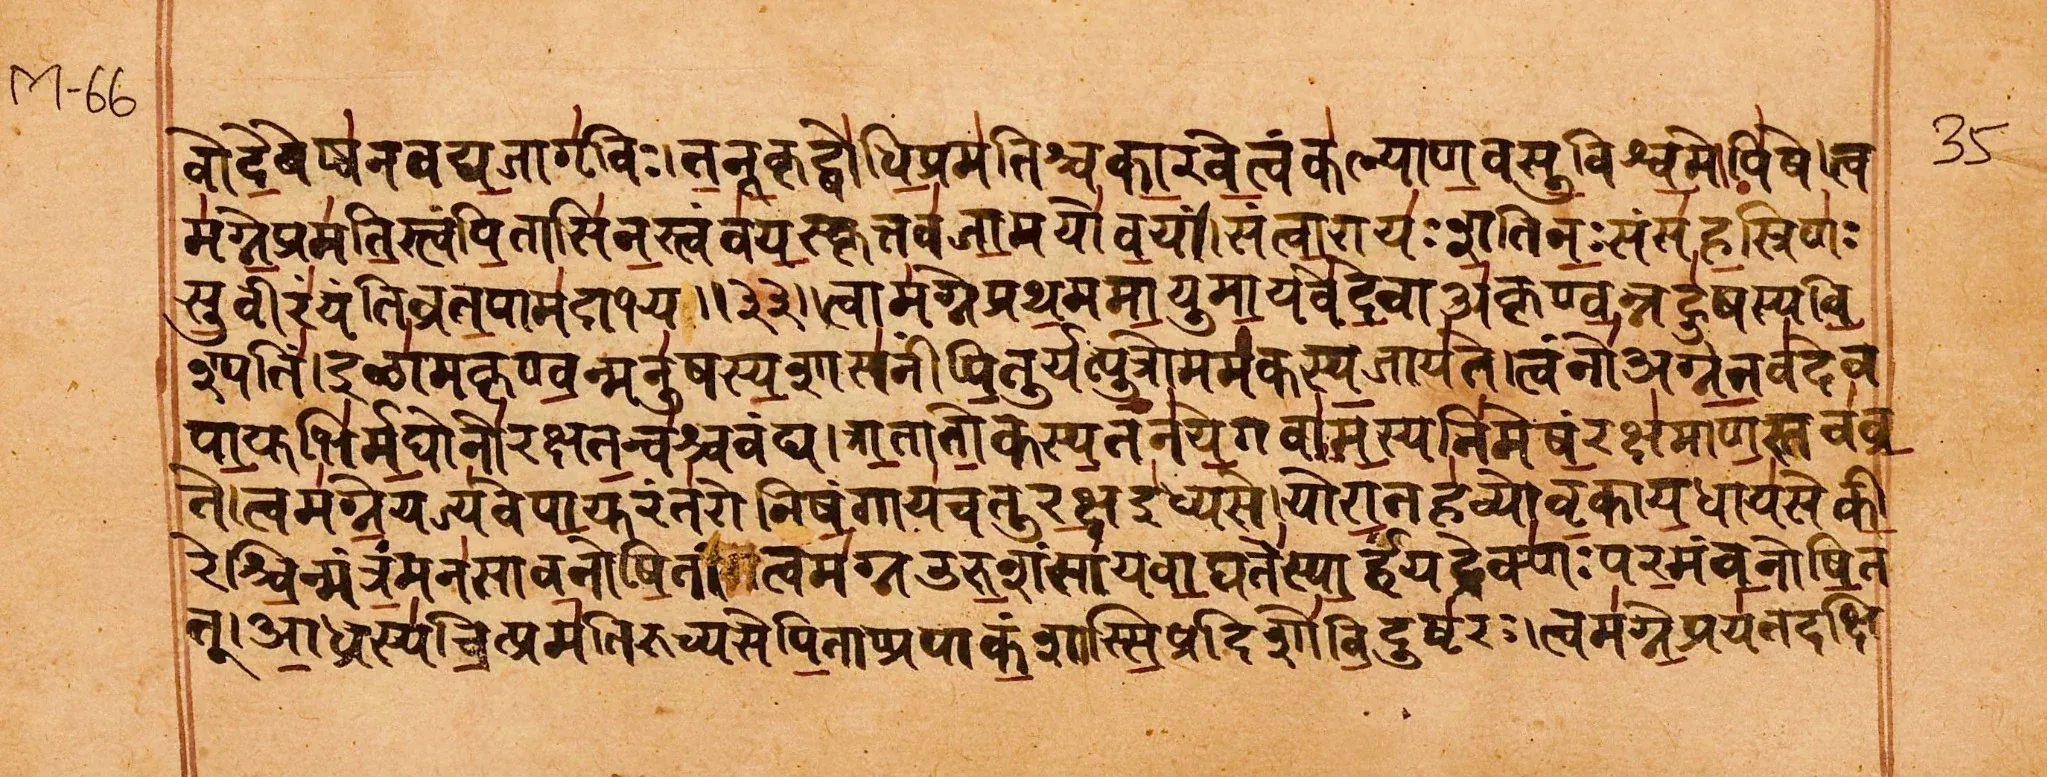 M-66
वोदेवेष्वनवद्यजागृविः।तनूकृद्बोधिप्रमतिश्चकारवेत्वंकल्याणवसुविश्वमोपिषे।त्व
35
मग्नेप्रमतिस्त्वंपितासिनस्त्वंवयस्कृत्तवजामयोवयं॥संत्वारायःशतिनःसंसहस्रिणः
सुवीरंयंतिव्रतपामदाभ्य॥३३॥त्वामग्नेप्रथममायुमायवेदेवाअकृण्वन्नहुषस्यवि
श्पतिं।इळामकृण्वन्मनुषस्यशासनींपितुर्यत्पुत्रोममकस्यजायते।त्वंनोअग्नेतवदेव
पायुभिर्मघोनोरक्षतन्वश्चवंद्य।त्रातातोकस्यतनयेगवामस्यनिमेषंरक्षमाणस्तवव्र
ते।त्वमग्नेयज्यवेपायुरंतरोनिषंगायचतुरक्षइध्यसे।योरातहव्योवृकायधायसेकी
रेश्चिन्मंत्रंमनसावनोषितं।त्वमग्नउरुशंसायवाघतेस्पार्हंयद्रेक्णःपरमंवनोषित
त्।आध्रस्यचित्प्रमतिरुच्यसेपिताप्रपाकंशास्सिप्रदिशोविदुष्टरः।त्वमग्नेप्रयतदक्षि